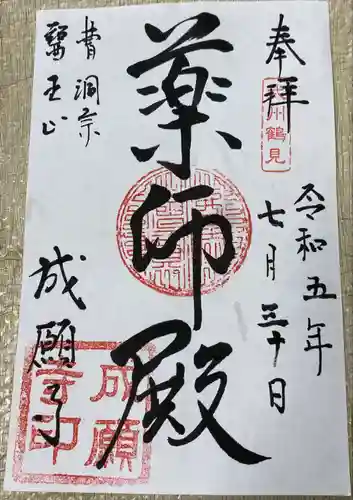 奉拝
州鶴見
令和五年
七月三十日
薬師殿
曹洞宗
醫王山
成願寺
成願
寺印